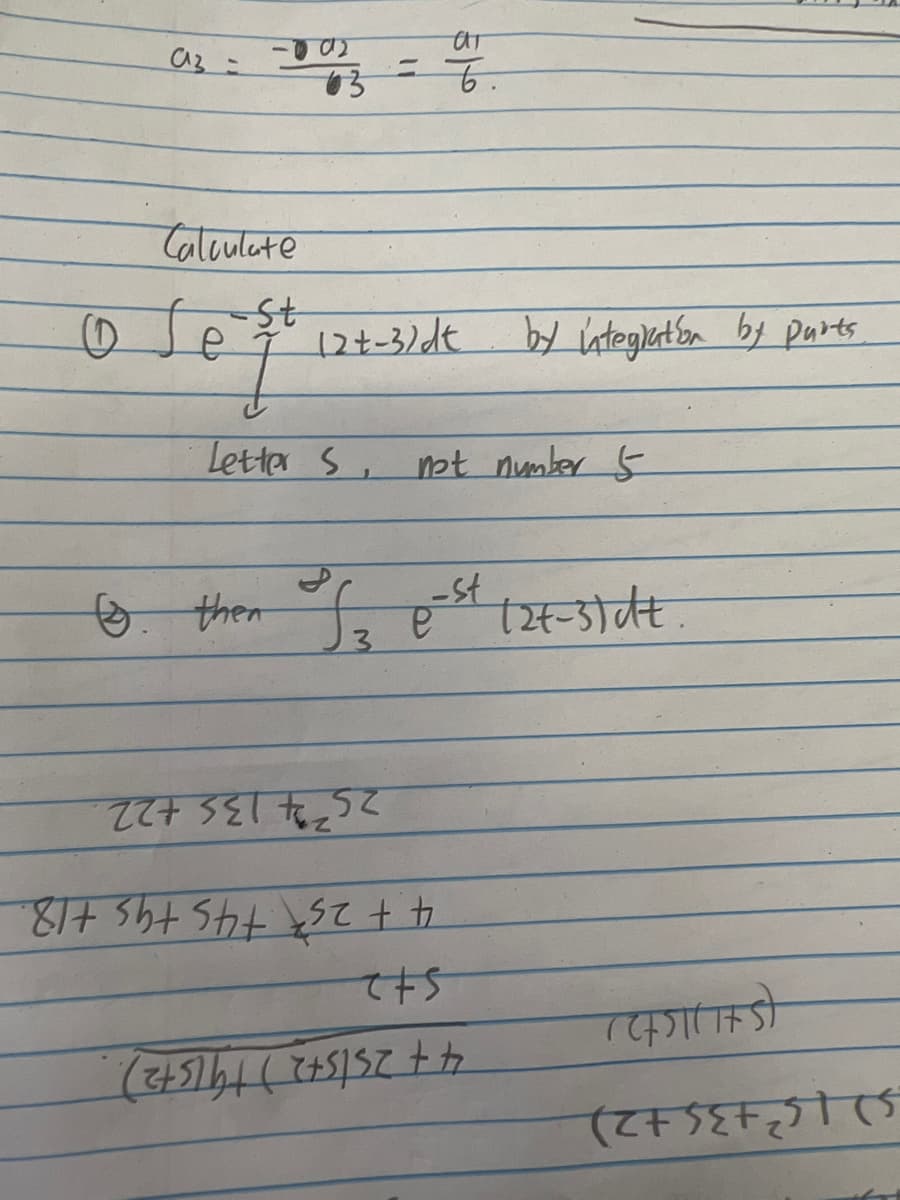 a3 = -a2/3 = a1/6.
Calculate
① ∫e^-st (2t-3)dt by integration by parts
Letter s, not number 5
②. then ∫_3^∞ e^-st (2t-3)dt.
2s²+13s+22
4+2s²+4s+9s+18
s+2
4+2s(s+2)+9(s+2)
(s+1)(s+2)
s)(s²+3s+2)